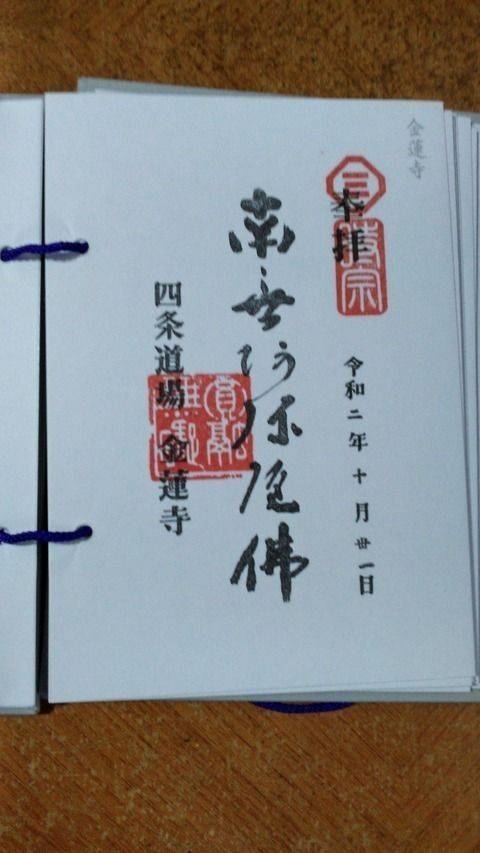 金蓮寺
奉拝
時宗
令和二年十月丗一日
南無阿弥陀佛
四条道場 金蓮寺